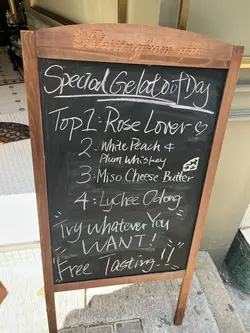 Special Gelato of Day
Top 1: Rose Lover ♡
2. White Peach &
Plum Whiskey
3: Miso Cheese Butter
4: Lychee Oolong
Try Whatever You
WANT!
Free Tasting!!